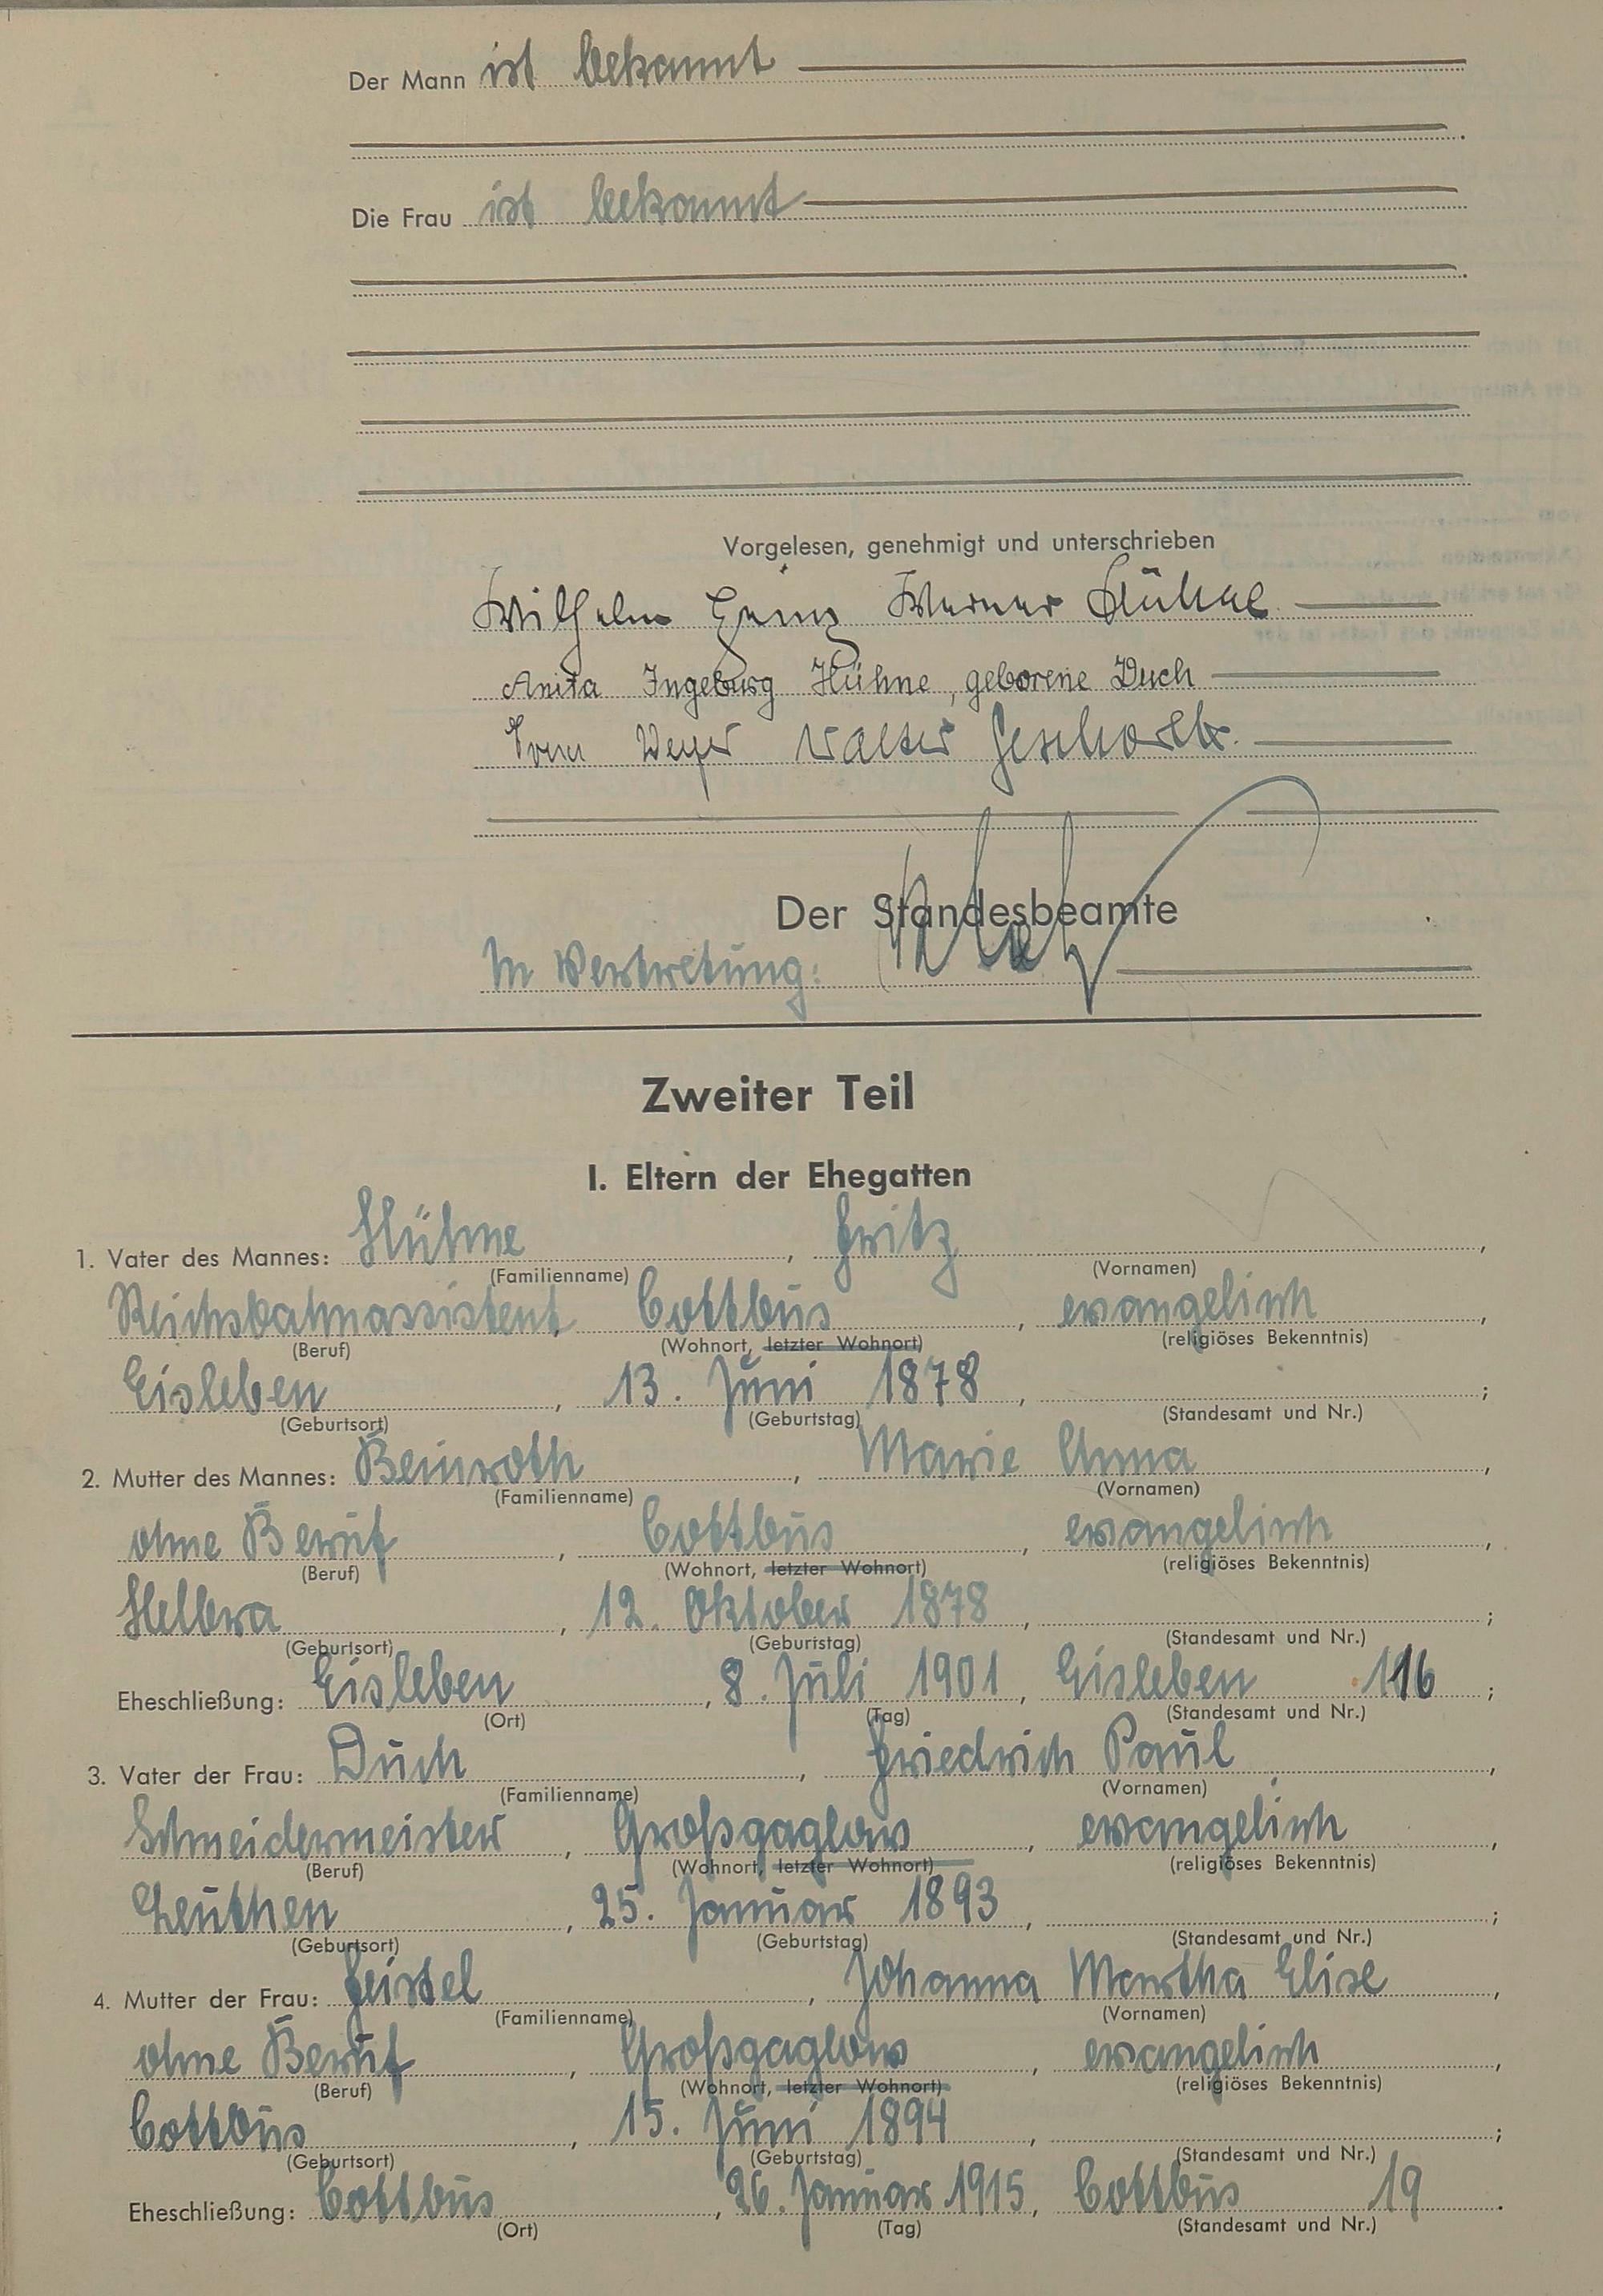 Der Mann ist bekannt
Die Frau ist bekannt
Vorgelesen, genehmigt und unterschrieben
Wilhelm Heinz Werner Hühne
Anita Ingeburg Hühne, geborene Duch
Walter
Der Standesbeamte
In Vertretung:
Zweiter Teil
I. Eltern der Ehegatten
1. Vater des Mannes: Hühne, Fritz,
(Familienname) (Vornamen)
Reichsbahnassistent, Cottbus, evangelisch,
(Beruf) (Wohnort, letzter Wohnort) (religiöses Bekenntnis)
Eisleben, 13. Juni 1878, ;
(Geburtsort) (Geburtstag) (Standesamt und Nr.)
2. Mutter des Mannes: Beinroth, Marie Anna,
(Familienname) (Vornamen)
ohne Beruf, Cottbus, evangelisch,
(Beruf) (Wohnort, letzter Wohnort) (religiöses Bekenntnis)
Helbra, 12. Oktober 1878, ;
(Geburtsort) (Geburtstag) (Standesamt und Nr.)
Eheschließung: Eisleben, 8. Juli 1901, Eisleben 116 ;
(Ort) (Tag) (Standesamt und Nr.)
3. Vater der Frau: Duch, Friedrich Paul,
(Familienname) (Vornamen)
Schneidermeister, Großgaglow, evangelisch,
(Beruf) (Wohnort, letzter Wohnort) (religiöses Bekenntnis)
Leuthen, 25. Januar 1893, ;
(Geburtsort) (Geburtstag) (Standesamt und Nr.)
4. Mutter der Frau: Feistel, Johanna Martha Elise,
(Familienname) (Vornamen)
ohne Beruf, Großgaglow, evangelisch,
(Beruf) (Wohnort, letzter Wohnort) (religiöses Bekenntnis)
Cottbus, 15. Juni 1894, ;
(Geburtsort) (Geburtstag) (Standesamt und Nr.)
Eheschließung: Cottbus, 26. Januar 1915, Cottbus 19.
(Ort) (Tag) (Standesamt und Nr.)